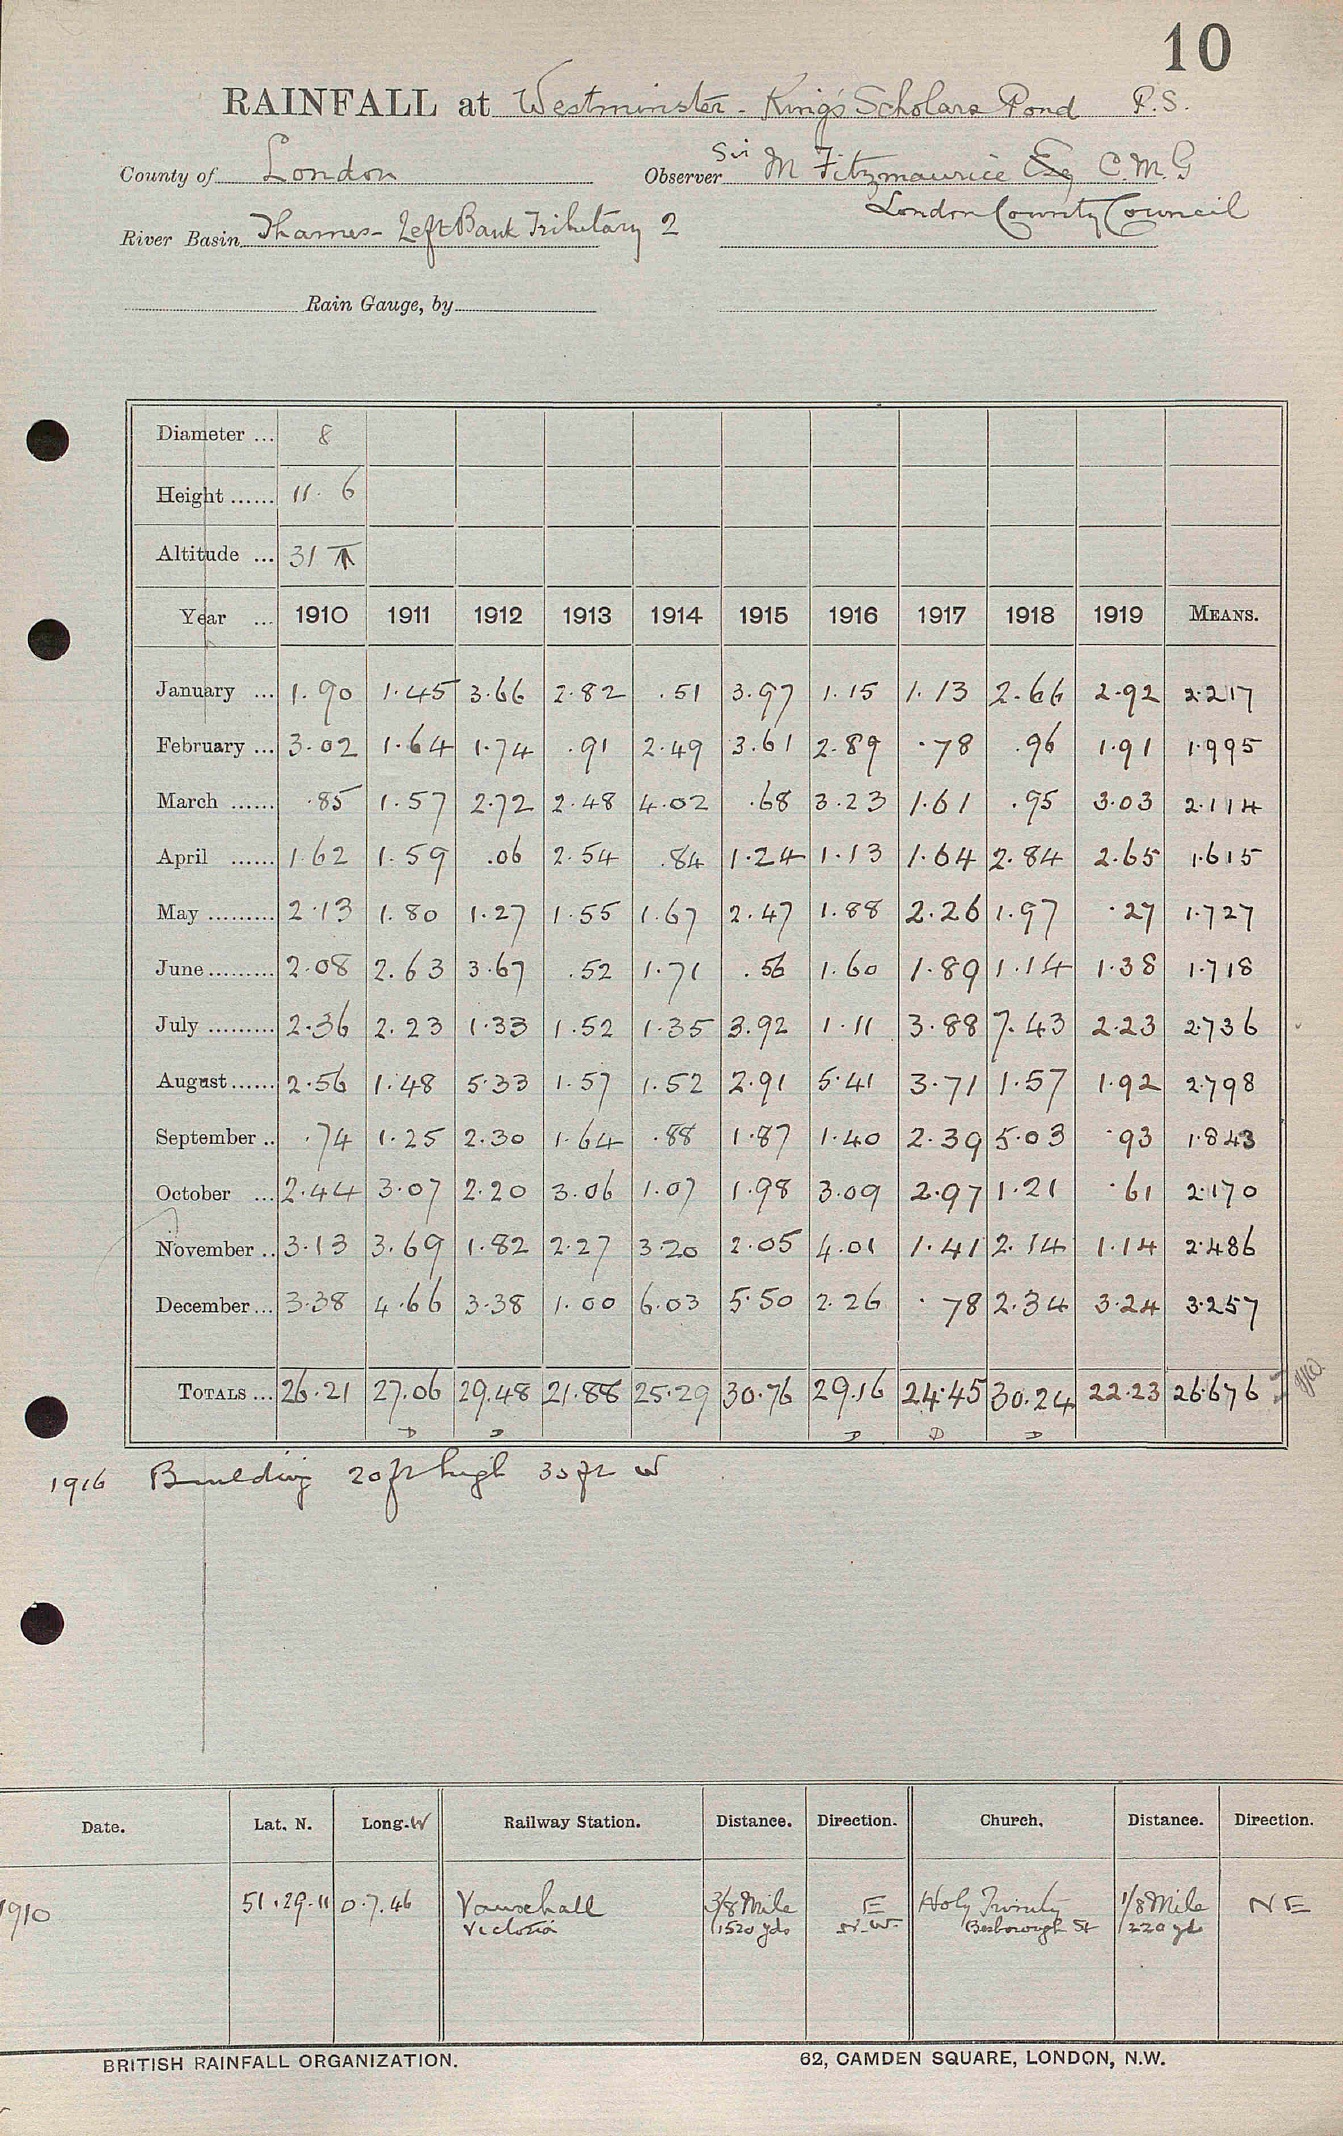 10
RAINFALL at Westminster - King's Scholars Pond P.S.
County of London Observer Sir M Fitzmaurice Esq C.M.G
London County Council
River Basin Thames - Left Bank Tributary 2
Rain Gauge, by
Diameter ... 8
Height ...... 11. 6
Altitude ... 31
Year ... 1910 1911 1912 1913 1914 1915 1916 1917 1918 1919 MEANS.
January ... 1.90 1.45 3.66 2.82 .51 3.97 1.15 1.13 2.66 2.92 2.217
February ... 3.02 1.64 1.74 .91 2.49 3.61 2.89 .78 .96 1.91 1.995
March ...... .85 1.57 2.72 2.48 4.02 .68 3.23 1.61 .95 3.03 2.114
April ...... 1.62 1.59 .06 2.54 .84 1.24 1.13 1.64 2.84 2.65 1.615
May ......... 2.13 1.80 1.27 1.55 1.67 2.47 1.88 2.26 1.97 .27 1.727
June ......... 2.08 2.63 3.67 .52 1.71 .56 1.60 1.89 1.14 1.38 1.718
July ......... 2.36 2.23 1.33 1.52 1.35 3.92 1.11 3.88 7.43 2.23 2.736
August ...... 2.56 1.48 5.33 1.57 1.52 2.91 5.41 3.71 1.57 1.92 2.798
September .. .74 1.25 2.30 1.64 .88 1.87 1.40 2.39 5.03 .93 1.843
October ... 2.44 3.07 2.20 3.06 1.07 1.98 3.09 2.97 1.21 .61 2.170
November .. 3.13 3.69 1.82 2.27 3.20 2.05 4.01 1.41 2.14 1.14 2.486
December ... 3.38 4.66 3.38 1.00 6.03 5.50 2.26 .78 2.34 3.24 3.257
TOTALS ... 26.21 27.06 29.48 21.88 25.29 30.76 29.16 24.45 30.24 22.23 26.676
D D D D D
1916 Building 20 ft high 30 ft W
Date. Lat. N. Long. W Railway Station. Distance. Direction. Church. Distance. Direction.
1910 51.29.11 0.7.46 Vauxhall 3/8 Mile E Holy Trinity 1/8 Mile NE
Victoria 1520 yds N.W. Besborough St 220 yds
BRITISH RAINFALL ORGANIZATION. 62, CAMDEN SQUARE, LONDON, N.W.